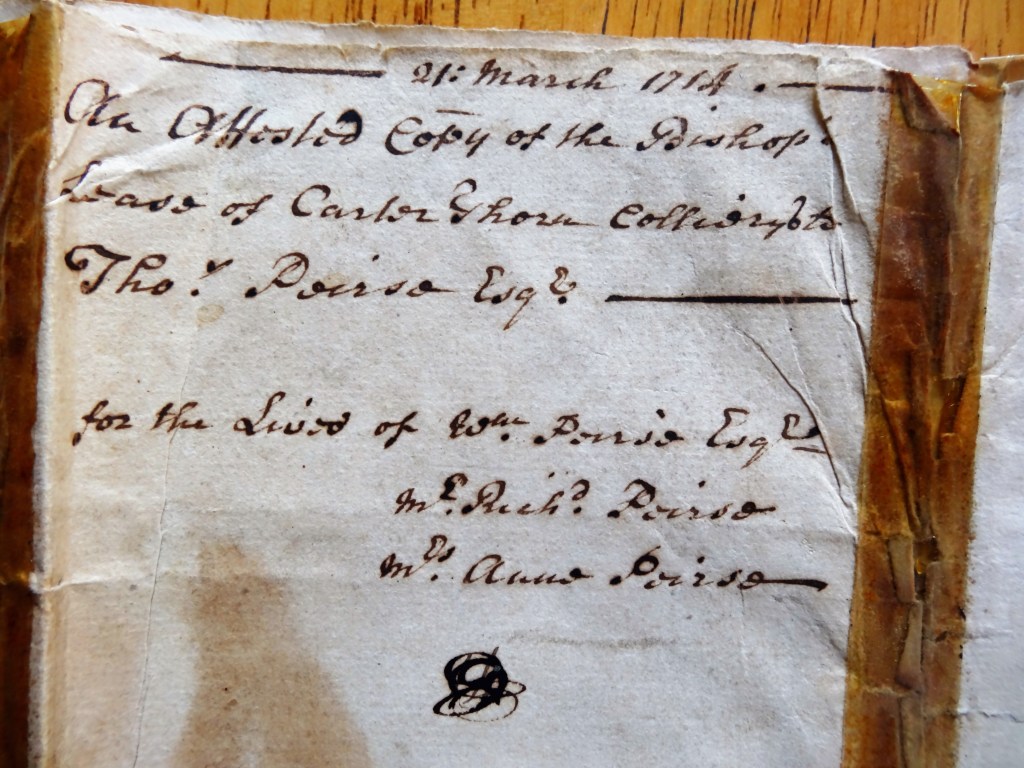 21: March 1714.
An Attested Copy of the Bishops
Lease of Carter Thorn Colliery to
Thos. Peirse Esqr.
for the Lives of Wm. Peirse Esqr.
Mr. Richd. Peirse
Mrs. Anne Peirse